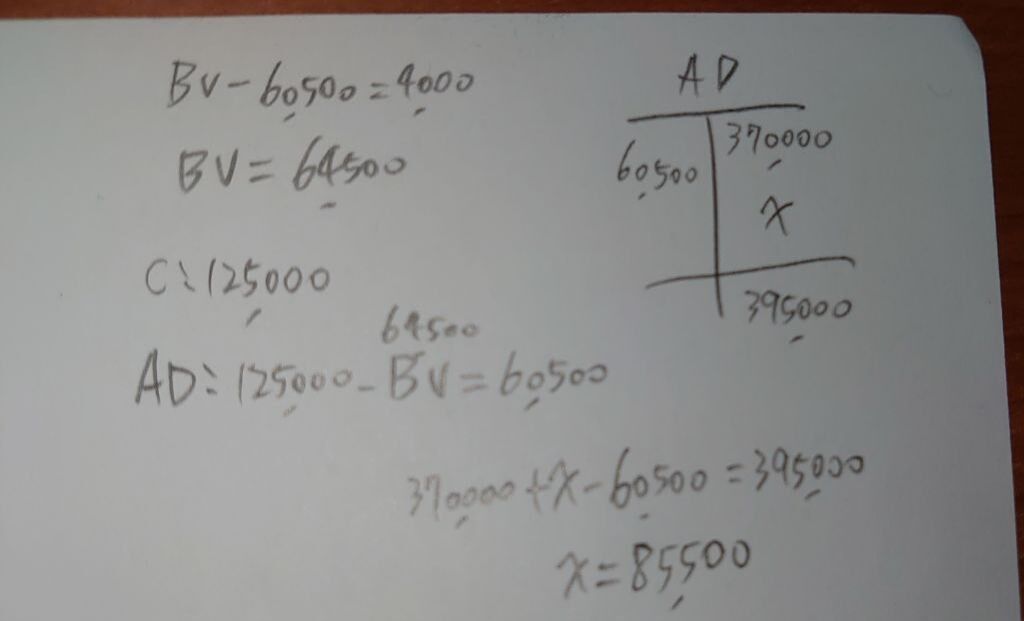 BV-60,500=4,000
BV=64,500
C:125,000
64500
AD:125,000-BV=60,500
AD
60,500 370,000
x
395,000
370,000+x-60,500=395,000
x=85,500